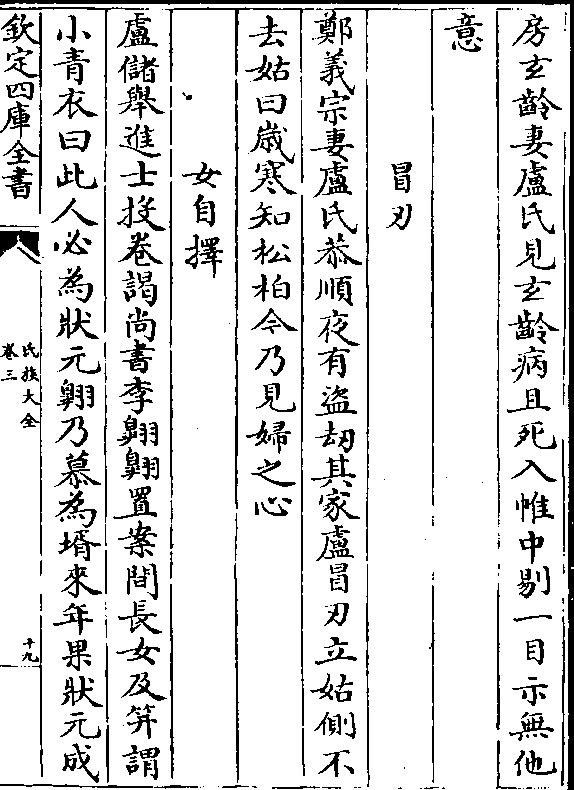 房玄齡妻盧氏見玄齡病且死入帷中剔一目示無他
意
冒刃
鄭義宗妻盧氏恭順夜有盜刼其家盧冒刃立姑側不
去姑曰歲寒知松栢今乃見婦之心
女自擇
盧儲舉進士投卷謁尚書李翺翺置案間長女及笄謂
小青衣曰此人必為狀元翺乃慕為壻來年果狀元成
欽定四庫全書
氏族大全
卷三
十九